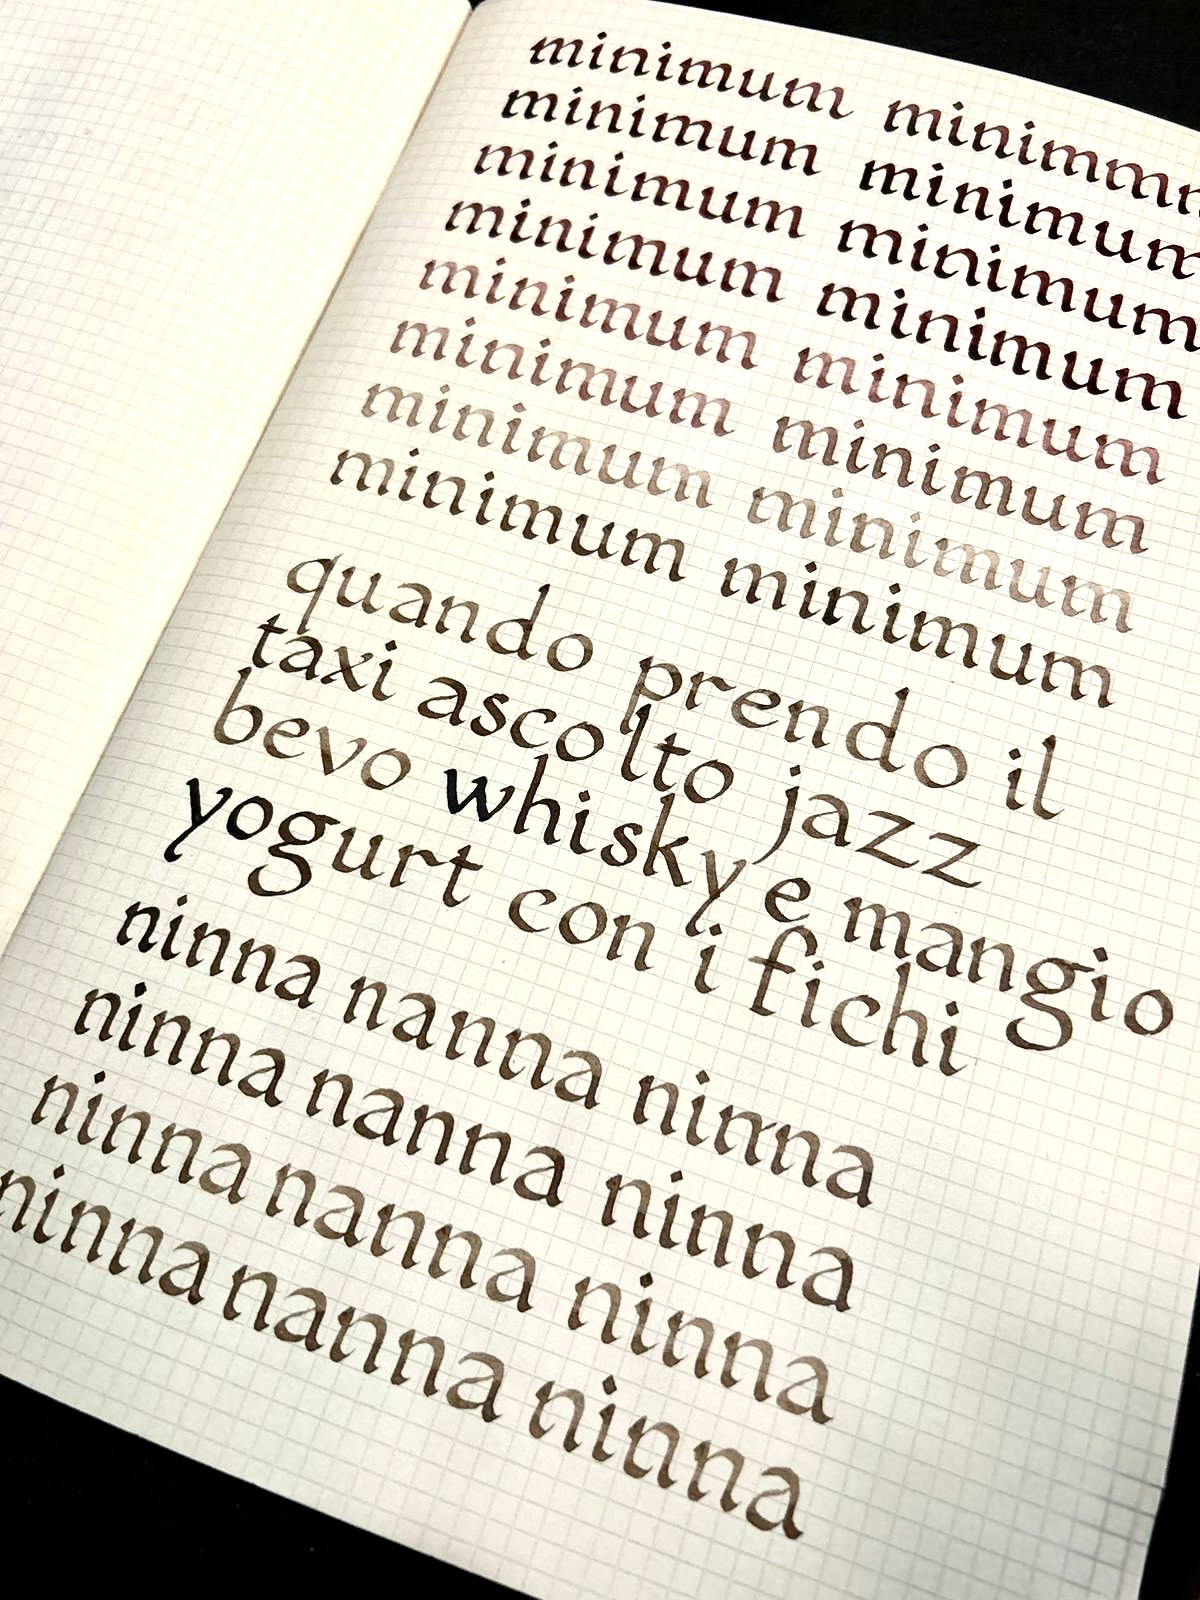 minimum
minimum minimum
minimum minimum
minimum minimum
minimum minimum
minimum minimum
minimum minimum
minimum minimum
quando prendo il
taxi ascolto jazz
bevo whisky e mangio
yogurt con i fichi
ninna nanna ninna
ninna nanna ninna
ninna nanna ninna
ninna nanna ninna